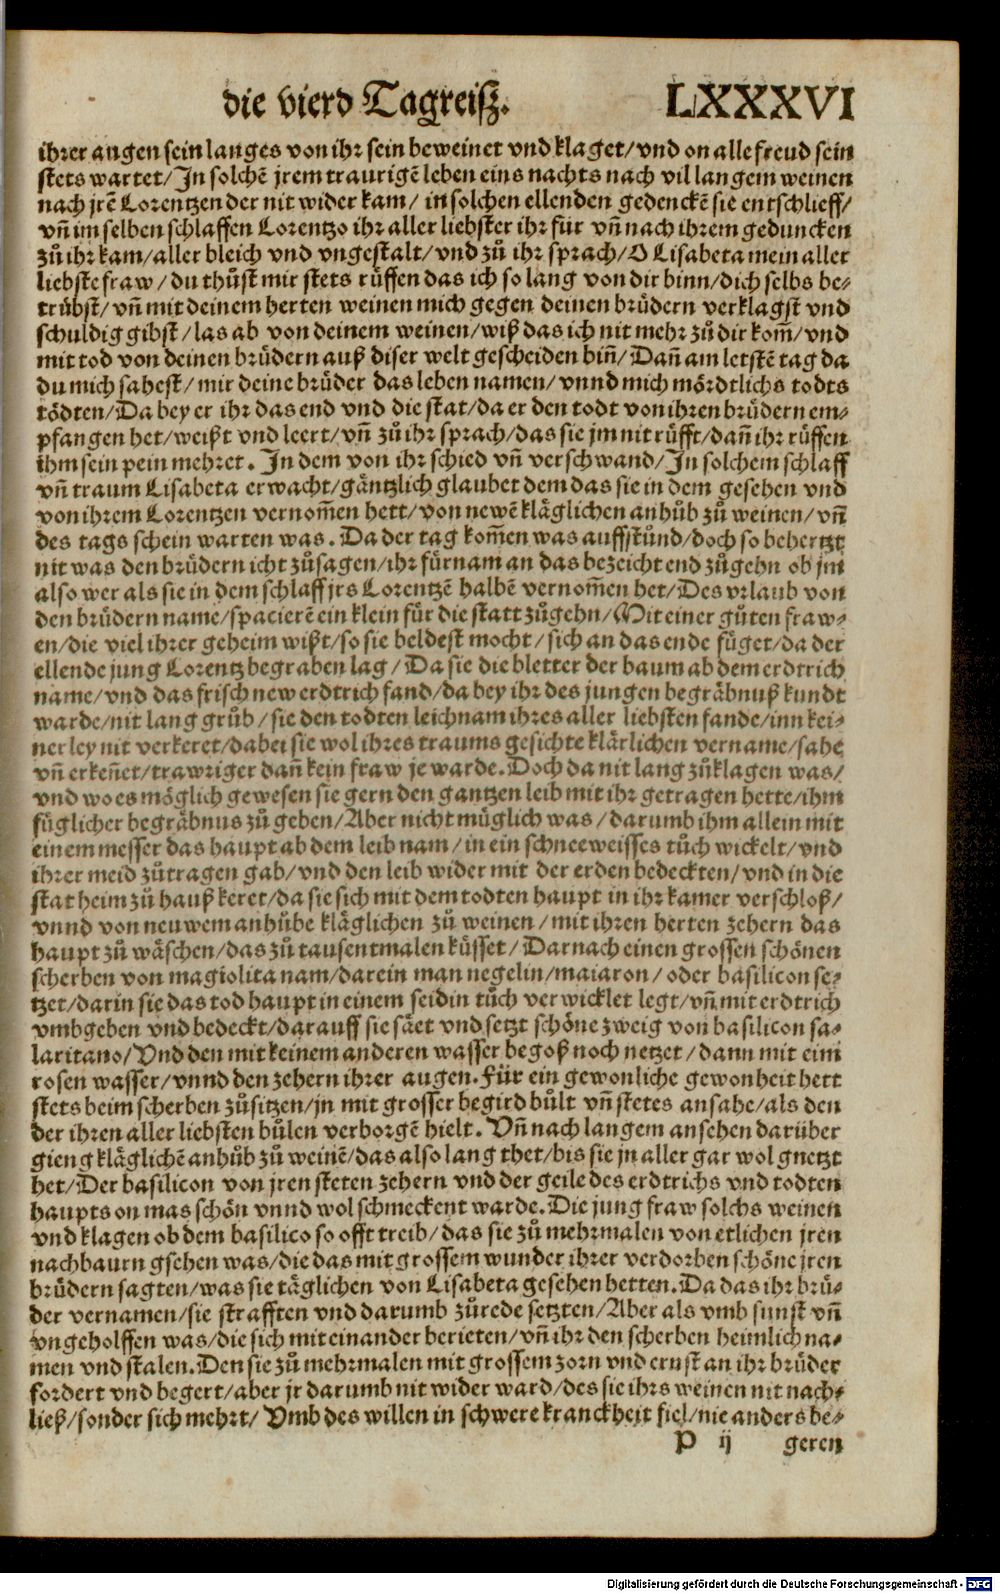 die vierd Tagreisz. LXXXVI
ihrer augen sein langes von ihr sein beweinet vnd klaget/vnd on alle freud sein
stets wartet/In solchē jrem traurigē leben eins nachts nach vil langem weinen
nach jrē Lorentzen der nit wider kam/ in solchen ellenden gedenckē sie entschlieff/
vñ im selben schlaffen Lorentzo ihr aller liebster ihr für vñ nach ihrem geduncken
zů ihr kam/aller bleich vnd vngestalt/vnd zů ihr sprach/O Lisabeta mein aller
liebste fraw/du thůst mir stets rüffen das ich so lang von dir binn/dich selbs be-
trübst/vñ mit deinem herten weinen mich gegen deinen brüdern verklagst vnd
schuldig gibst/las ab von deinem weinen/wiß das ich nit mehr zů dir kom̃/vnd
mit tod von deinen brüdern auß diser welt gescheiden biñ/Dañ am letstē tag da
du mich sahest/mir deine brüder das leben namen/vnnd mich mördtlichs todts
tödten/Da bey er ihr das end vnd die stat/da er den todt von ihren brüdern em-
pfangen het/weißt vnd leert/vñ zů ihr sprach/das sie jm nit rüfft/dañ ihr rüffen
ihm sein pein mehret. In dem von ihr schied vñ verschwand/In solchem schlaff
vñ traum Lisabeta erwacht/gäntzlich glaubet dem das sie in dem gesehen vnd
von ihrem Lorentzen vernom̃en hett/von newē kläglichen anhůb zů weinen/vñ
des tags schein warten was. Da der tag kom̃en was auffstůnd/doch so behertzt
nit was den brüdern icht zůsagen/ihr fürnam an das bezeicht end zůgehn ob jm
also wer als sie in dem schlaff jrs Lorentzē halbē vernom̃en het/Des vrlaub von
den brüdern name/spacierē ein klein für die statt zůgehn/Mit einer gůten fraw-
en/die viel ihrer geheim wißt/so sie beldest mocht/sich an das ende füget/da der
ellende jung Lorentz begraben lag/Da sie die bletter der baum ab dem erdtrich
name/vnd das frisch new erdtrich fand/da bey ihr des jungen begräbnuß kundt
warde/nit lang grůb/sie den todten leichnam ihres aller liebsten fande/inn kei-
nerley nit verkeret/dabei sie wol ihres traums gesichte klärlichen vername/sahe
vñ erkeñet/trawriger dañ kein fraw je warde. Doch da nit lang zůklagen was/
vnd wo es möglich gewesen sie gern den gantzen leib mit ihr getragen hette/ihm
füglicher begräbnus zů geben/Aber nicht müglich was/darumb ihm allein mit
einem messer das haupt ab dem leib nam/in ein schneeweisses tůch wickelt/vnd
ihrer meid zůtragen gab/vnd den leib wider mit der erden bedeckten/vnd in die
stat heim zů hauß keret/da sie sich mit dem todten haupt in ihr kamer verschloß/
vnnd von neuwem anhůbe kläglichen zů weinen/mit ihren herten zehern das
haupt zů wäschen/das zů tausentmalen küsset/Darnach einen grossen schönen
scherben von magiolita nam/darein man negelin/maiaron/ oder basilicon se-
tzet/darin sie das tod haupt in einem seidin tůch verwicklet legt/vñ mit erdtrich
vmbgeben vnd bedeckt/darauff sie säet vnd setzt schöne zweig von basilicon sa-
laritano/Vnd den mit keinem anderen wasser begoß noch netzet/dann mit eim
rosen wasser/vnnd den zehern ihrer augen. Für ein gewonliche gewonheit hett
stets beim scherben zůsitzen/jn mit grosser begird bůlt vñ stetes ansahe/als den
der ihren aller liebsten bůlen verborgē hielt. Vñ nach langem ansehen darüber
gieng kläglichē anhůb zů weinē/das also lang thet/bis sie jn aller gar wol gnetzt
het/Der basilicon von jren steten zehern vnd der geile des erdtrichs vnd todten
haupts on mas schön vnnd wol schmeckent warde. Die jung fraw solchs weinen
vnd klagen ob dem basilico so offt treib/das sie zů mehrmalen von etlichen jren
nachbaurn gsehen was/die das mit grossem wunder ihrer verdorben schöne jren
brüdern sagten/was sie täglichen von Lisabeta gesehen hetten. Da das ihr brü-
der vernamen/sie strafften vnd darumb zůrede setzten/Aber als vmb sunst vñ
vngeholffen was/die sich mit einander berieten/vñ ihr den scherben heimlich na-
men vnd stalen. Den sie zů mehrmalen mit grossem zorn vnd ernst an ihr brüder
fordert vnd begert/aber jr darumb nit wider ward/des sie ihrs weinen nit nach-
ließ/sonder sich mehrt/Vmb des willen in schwere kranckheit fiel/nie anders be-
P ij geren
Digitalisierung gefördert durch die Deutsche Forschungsgemeinschaft - DFG